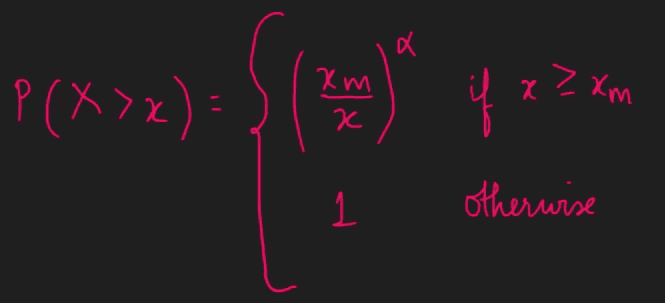 P(X > x) = { (x_m / x)^α if x ≥ x_m
1 otherwise